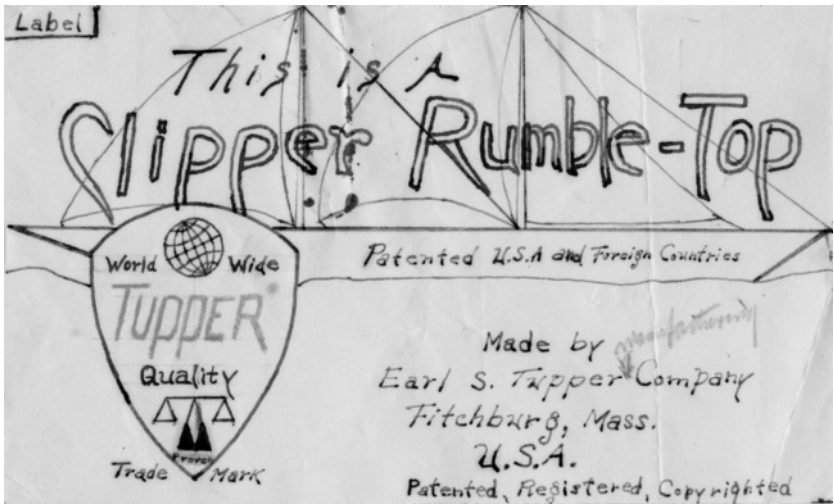 Label
This is A
Clipper Rumble-Top
Patented U.S.A and Foreign Countries
World Wide
TUPPER
Quality
Proven
Trade Mark
Made by manufacturing
Earl S. Tupper Company
Fitchburg, Mass.
U.S.A.
Patented, Registered, Copyrighted